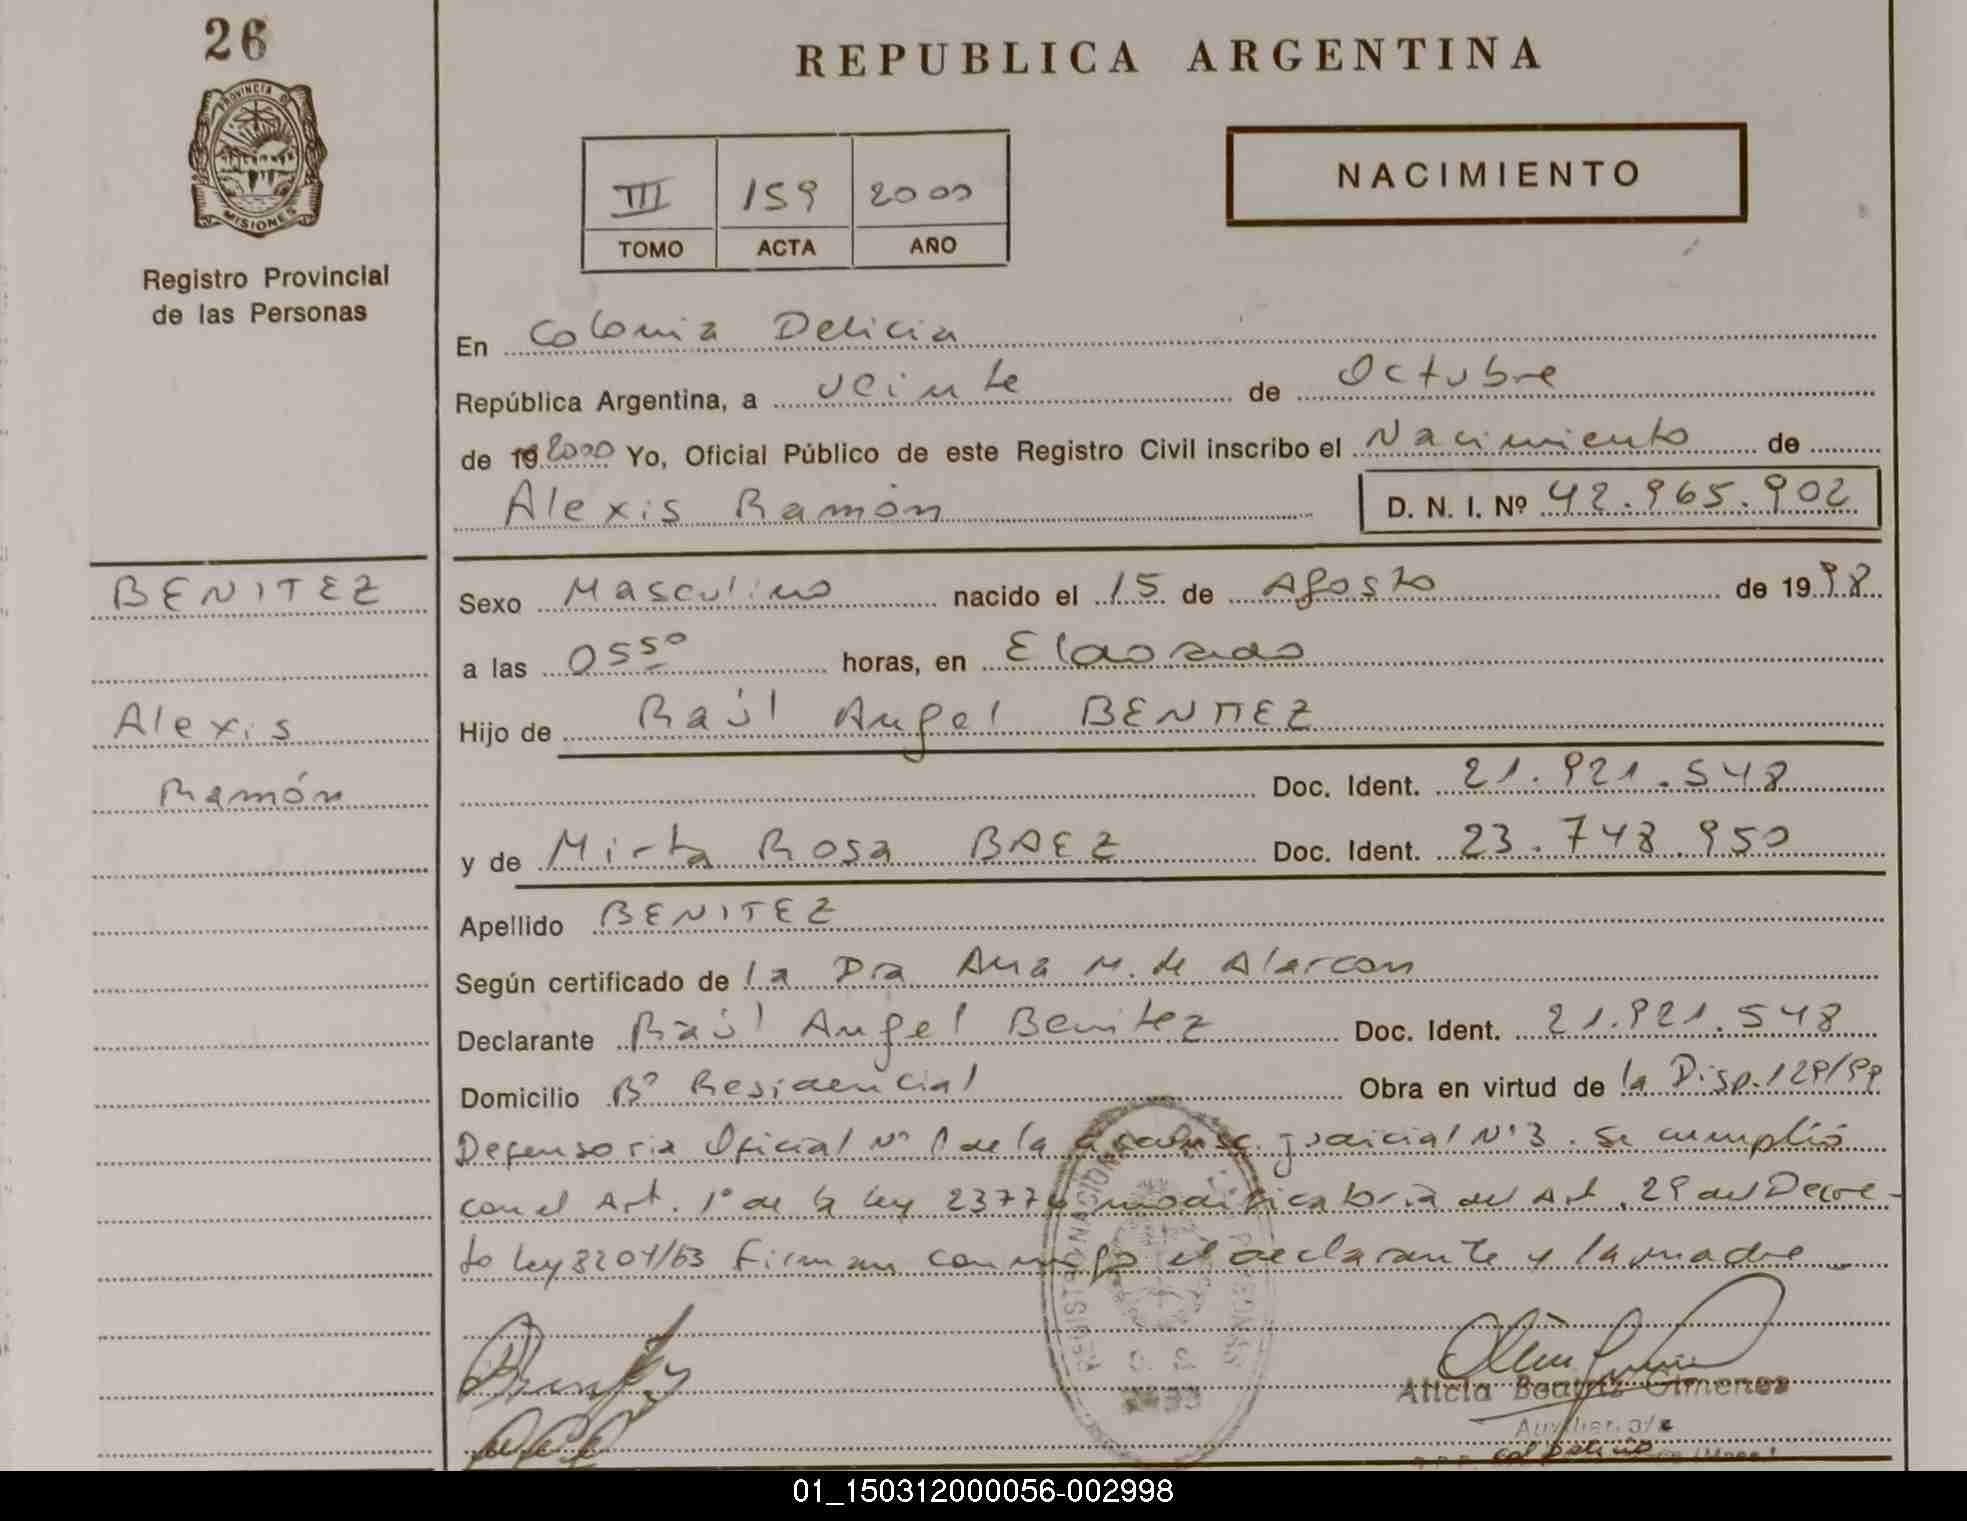 26
PROVINCIA DE
MISIONES
Registro Provincial
de las Personas
REPUBLICA ARGENTINA
III 159 2000
TOMO ACTA AÑO
NACIMIENTO
En Colonia Delicia
República Argentina, a veinte de Octubre
de 19 2000 Yo, Oficial Público de este Registro Civil inscribo el Nacimiento de
Alexis Ramón D. N. I. Nº 42.965.902
BENITEZ
Alexis
Ramón
Sexo Masculino nacido el 15 de Agosto de 1998
a las 05 50 horas, en Eldorado
Hijo de Raúl Angel BENITEZ
Doc. Ident. 21.921.548
y de Mirta Rosa BAEZ Doc. Ident. 23.748.950
Apellido BENITEZ
Según certificado de la Dra Ana M. de Alarcon
Declarante Raúl Angel Benitez Doc. Ident. 21.921.548
Domicilio Bº Residencial Obra en virtud de la Disp. 129/99
Defensoria Oficial Nº 1 de la judicial Nº 3. Se cumplió
con el Art. 1º de la ley 23776 modificatoria del Art. 29 del Decre-
to ley 8204/63 Firman conmigo el declarante y la madre
Alicia Beatriz Gimenez
Auxiliar a/c
01_150312000056-002998